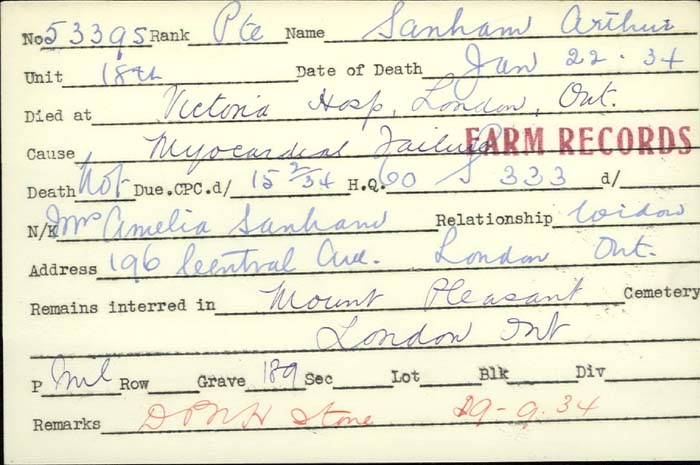 No 53395 Rank Pte Name Sanham Arthur
Unit 18th Date of Death Jan 22-34
Died at Victoria Hosp, London, Ont.
Cause Myocardial Failure FARM RECORDS
Death Not Due.CPC.d/ 15 2/34 H.Q. 60 S 333 d/
N/K Mrs Amelia Sanham Relationship Widow
Address 196 Central Ave. London Ont.
Remains interred in Mount Pleasant Cemetery
London Ont
P Mil Row Grave 189 Sec Lot Blk Div
Remarks Stone 19-9.34